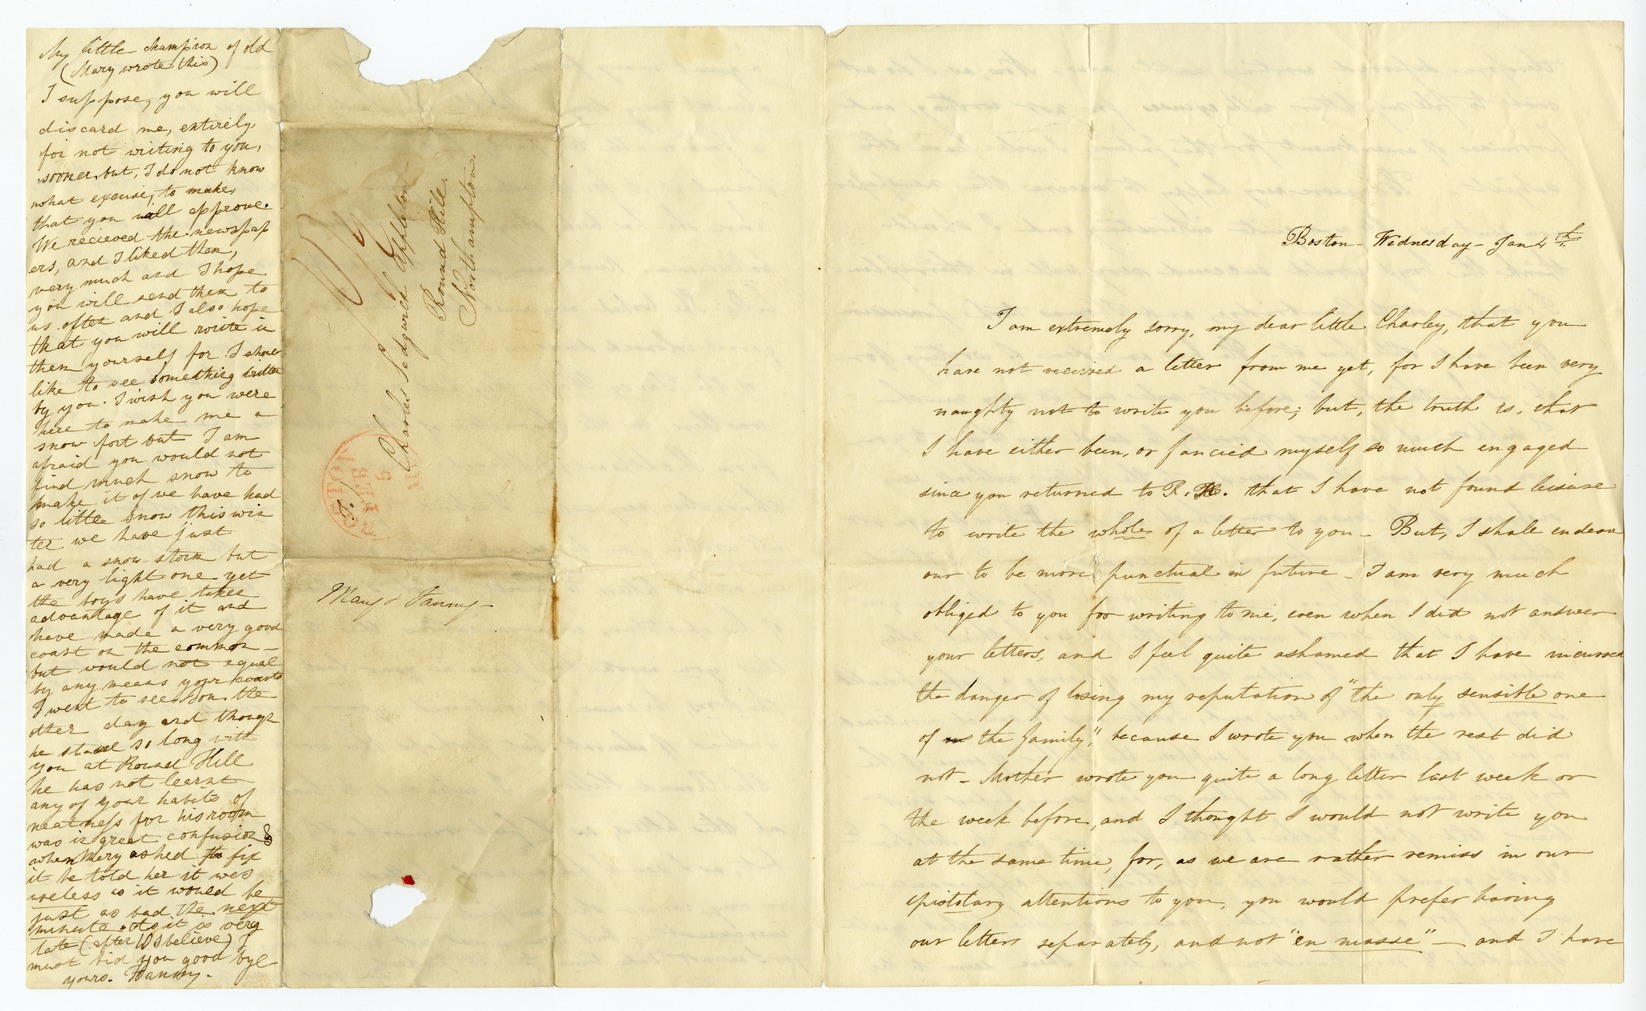 My little champion of old
(Mary wrote this)
I suppose, you will
discard me, entirely
for not writing to you,
sooner, but, I do not know
what excuse, to make,
that you will approve.
We recieved the newspap
ers, and I liked them,
very much and I hope
you will send them to
us often and I also hope
that you will write in
them yourself for I should
like to see something written
by you. I wish you were
here to make me a
snow fort but I am
afraid you would not
find much snow to
make it of we have had
so little snow this win
ter we have just
had a snow storm but
a very light one yet
the boys have taken
advantage of it and
have made a very good
coast on the common—
but would not equal
by any means your coasts
I went to see the
other day and though
he staid so long with
you at Round Hill
he has not learnt
any of your habits of
neatness for his room
was in great confusion &
when Mary asked to fix
it he told her it was
useless as it would be
just as bad the next
minute. it is very
late (after 10 I believe) I
must bid you good bye
yours. Fanny.
To
Charles Sedgwick Appleton
Round Hill
Northampton
BOSTON
FEB
5
MS
Mary & Fanny—
Boston— Wednesday— Jan 4th.
I am extremely sorry, my dear little Charley, that you
have not received a letter from me yet, for I have been very
naughty not to write you before; but, the truth is, that
I have either been, or fancied myself so much engaged
since you returned to R. H. that I have not found leisure
to write the whole of a letter to you— But, I shall endeav
our to be more punctual in future— I am very much
obliged to you for writing to me, even when I did not answer
your letters, and I feel quite ashamed that I have incurred
the danger of losing my reputation of "the only sensible one
of the family", because I wrote you when the rest did
not— Mother wrote you quite a long letter last week or
the week before, and I thought I would not write you
at the same time, for, as we are rather remiss in our
epistolary attentions to you, you would prefer having
our letters separately, and not "en masse"— and I have